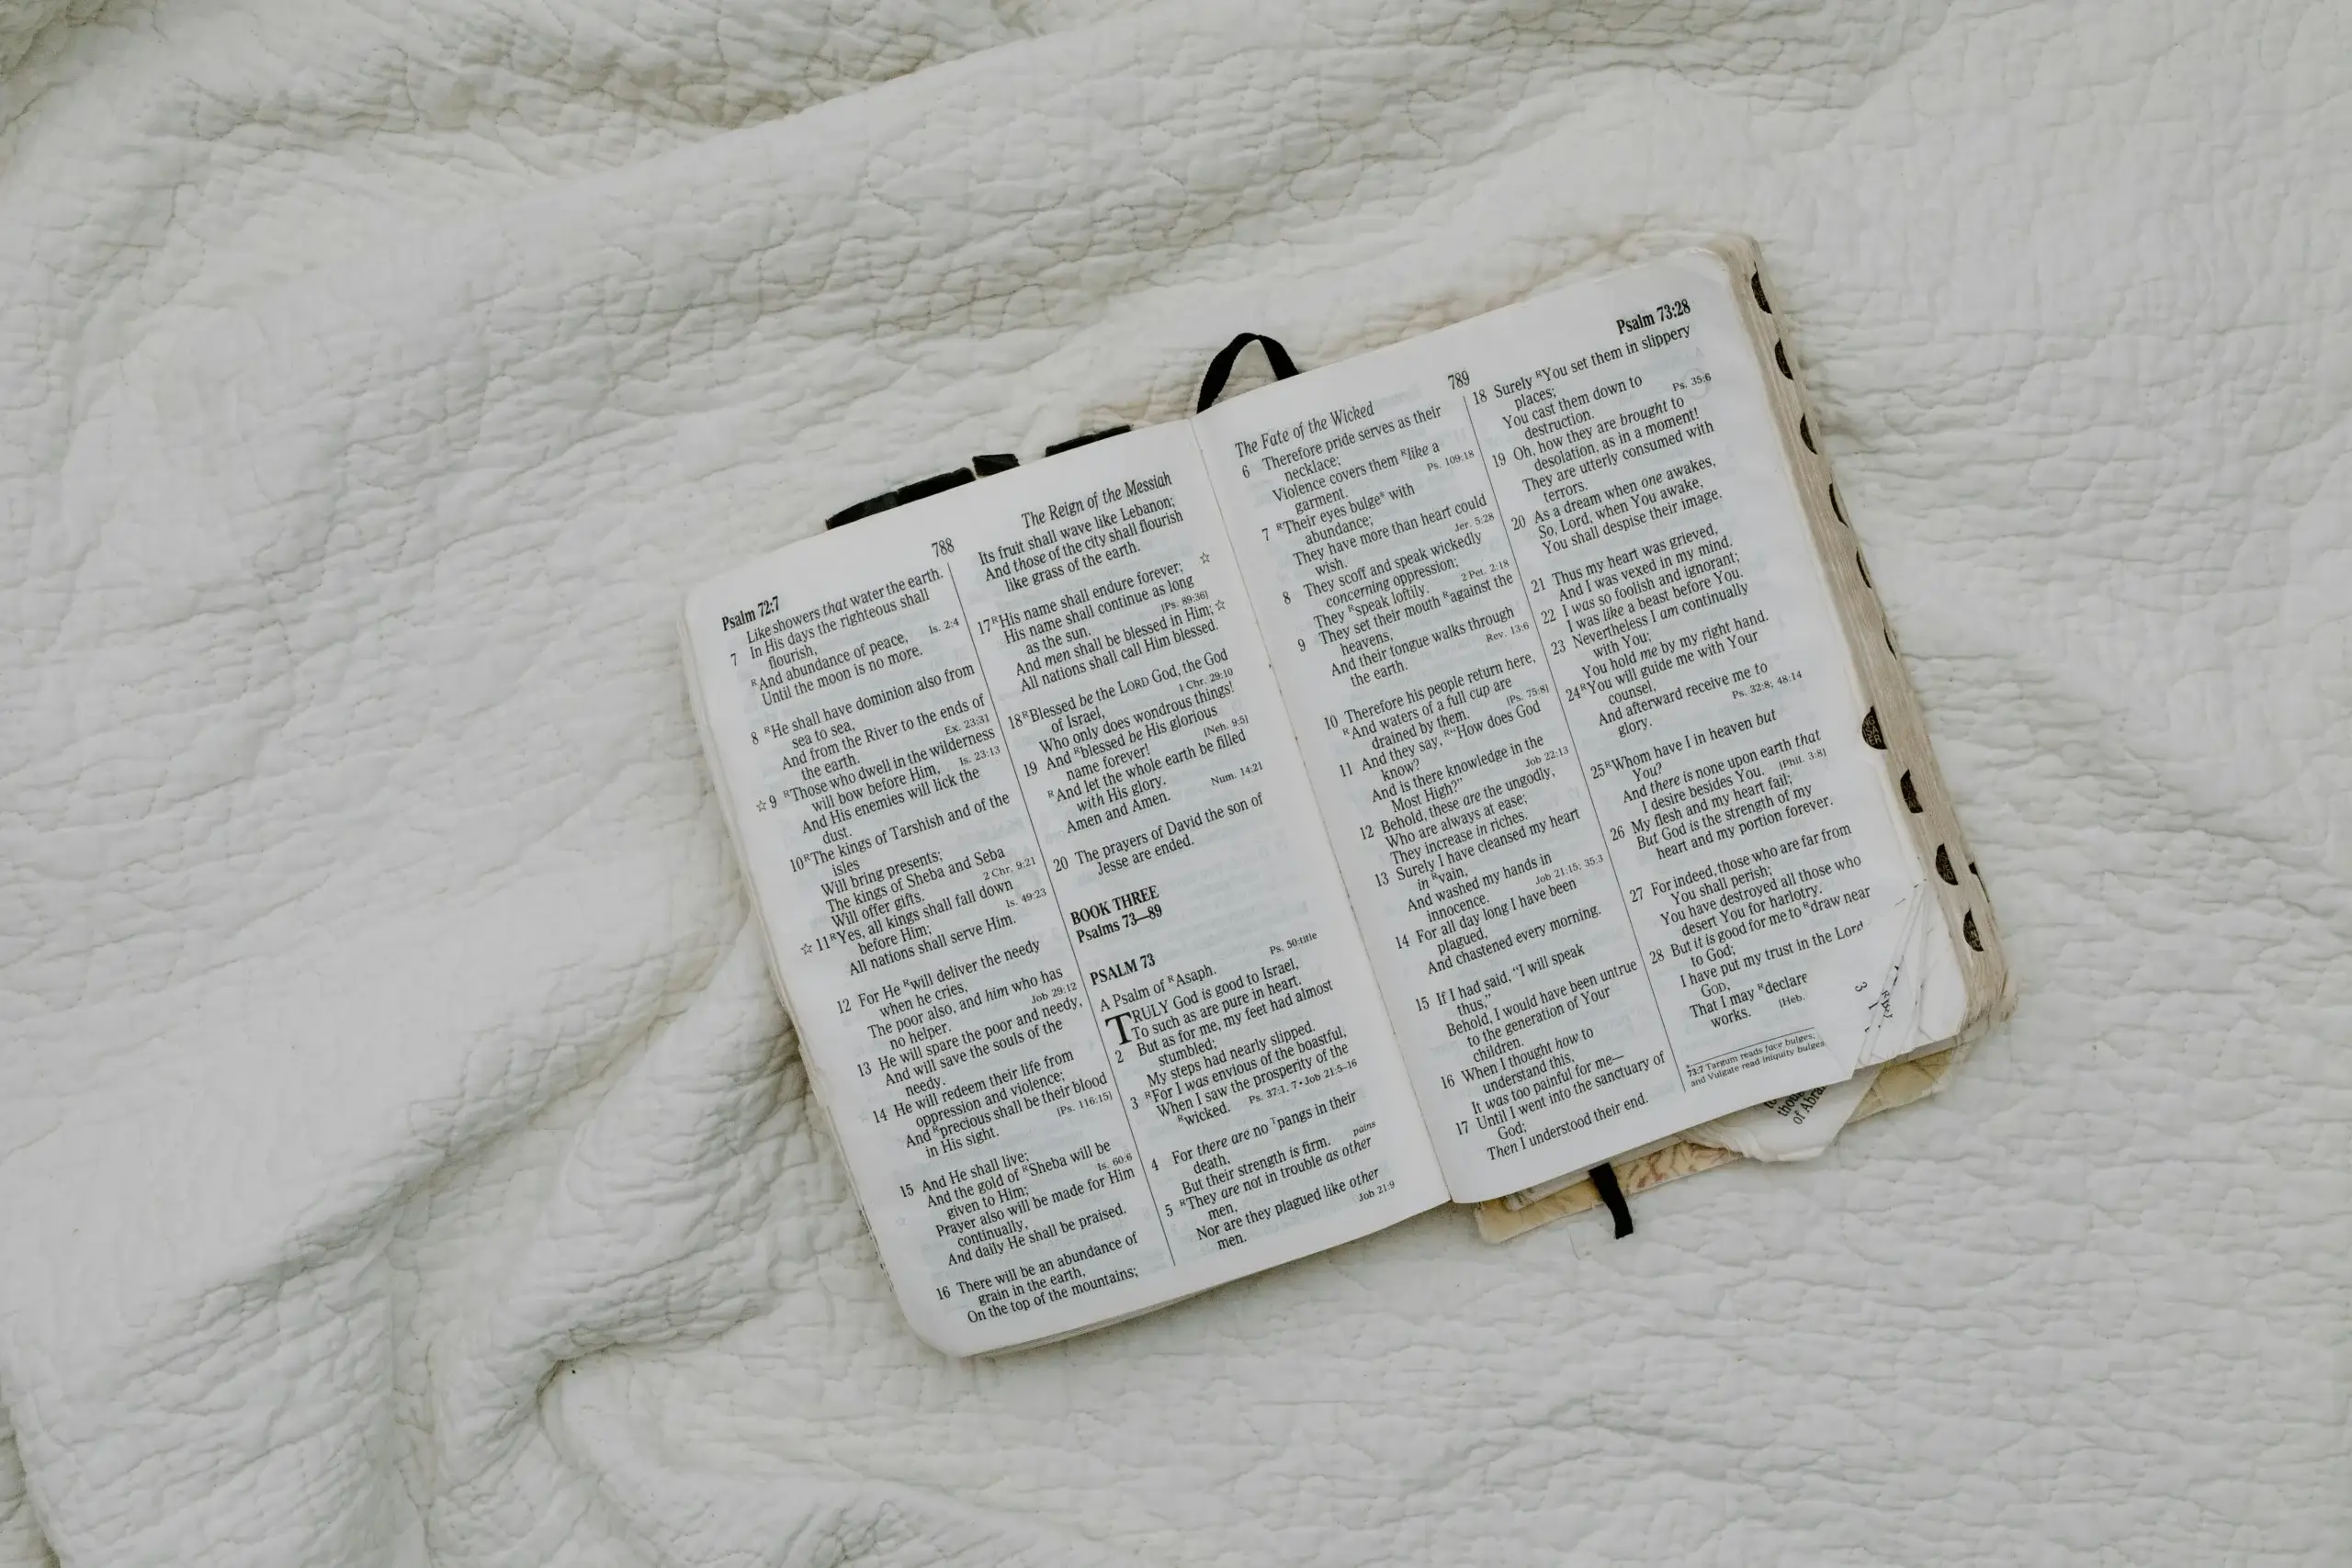 Psalm 72:7
788
The Reign of the Messiah
Like showers that water the earth.
7 In His days the righteous shall
flourish,
Is. 2:4
RAnd abundance of peace,
Until the moon is no more.
8 RHe shall have dominion also from
sea to sea,
And from the River to the ends of
the earth.
Ex. 23:31
☆9 RThose who dwell in the wilderness
will bow before Him,
Is. 23:13
And His enemies will lick the
dust.
10RThe kings of Tarshish and of the
isles
Will bring presents;
The kings of Sheba and Seba
Will offer gifts.
2 Chr. 9:21
☆11RYes, all kings shall fall down
before Him;
Is. 49:23
All nations shall serve Him.
12 For He Rwill deliver the needy
when he cries,
The poor also, and him who has
no helper.
Job 29:12
13 He will spare the poor and needy,
And will save the souls of the
needy.
14 He will redeem their life from
oppression and violence;
And Rprecious shall be their blood
in His sight.
[Ps. 116:15]
15 And He shall live;
And the gold of RSheba will be
given to Him;
Is. 60:6
Prayer also will be made for Him
continually,
And daily He shall be praised.
16 There will be an abundance of
grain in the earth,
On the top of the mountains;
Its fruit shall wave like Lebanon;
And those of the city shall flourish
like grass of the earth.
17RHis name shall endure forever; ☆
His name shall continue as long
as the sun.
[Ps. 89:36]
And men shall be blessed in Him; ☆
All nations shall call Him blessed.
18RBlessed be the LORD God, the God
of Israel,
1 Chr. 29:10
Who only does wondrous things!
19 And Rblessed be His glorious
name forever!
[Neh. 9:5]
RAnd let the whole earth be filled
with His glory.
Amen and Amen.
Num. 14:21
20 The prayers of David the son of
Jesse are ended.
BOOK THREE
Psalms 73—89
PSALM 73
A Psalm of RAsaph.
Ps. 50:title
TRULY God is good to Israel,
To such as are pure in heart.
2 But as for me, my feet had almost
stumbled;
My steps had nearly slipped.
3 RFor I was envious of the boastful,
When I saw the prosperity of the
Rwicked.
Ps. 37:1, 7 • Job 21:5–16
4 For there are no Tpangs in their
death,
pains
But their strength is firm.
5 RThey are not in trouble as other
men,
Nor are they plagued like other
men.
Job 21:9
The Fate of the Wicked
789
Psalm 73:28
6 Therefore pride serves as their
necklace;
Violence covers them Rlike a
garment.
Ps. 109:18
7 RTheir eyes bulge* with
abundance;
They have more than heart could
wish.
Jer. 5:28
8 They scoff and speak wickedly
concerning oppression;
They Rspeak loftily.
2 Pet. 2:18
9 They set their mouth Ragainst the
heavens,
And their tongue walks through
the earth.
Rev. 13:6
10 Therefore his people return here,
RAnd waters of a full cup are
drained by them.
[Ps. 75:8]
11 And they say, R"How does God
know?
And is there knowledge in the
Most High?"
Job 22:13
12 Behold, these are the ungodly,
Who are always at ease;
They increase in riches.
13 Surely I have cleansed my heart
in Rvain,
And washed my hands in
innocence.
Job 21:15; 35:3
14 For all day long I have been
plagued,
And chastened every morning.
15 If I had said, "I will speak
thus,"
Behold, I would have been untrue
to the generation of Your
children.
16 When I thought how to
understand this,
It was too painful for me—
17 Until I went into the sanctuary of
God;
Then I understood their end.
18 Surely RYou set them in slippery
places;
You cast them down to
destruction.
Ps. 35:6
19 Oh, how they are brought to
desolation, as in a moment!
They are utterly consumed with
terrors.
20 As a dream when one awakes,
So, Lord, when You awake,
You shall despise their image.
21 Thus my heart was grieved,
And I was vexed in my mind.
22 I was so foolish and ignorant;
I was like a beast before You.
23 Nevertheless I am continually
with You;
You hold me by my right hand.
24RYou will guide me with Your
counsel,
And afterward receive me to
glory.
Ps. 32:8; 48:14
25RWhom have I in heaven but
You?
And there is none upon earth that
I desire besides You.
[Phil. 3:8]
26 My flesh and my heart fail;
But God is the strength of my
heart and my portion forever.
27 For indeed, those who are far from
You shall perish;
You have destroyed all those who
desert You for harlotry.
28 But it is good for me to Rdraw near
to God;
I have put my trust in the Lord
GOD,
That I may Rdeclare
works.
[Heb.
73:7 Targum reads face bulges;
and Vulgate read iniquity bulges
of Abra